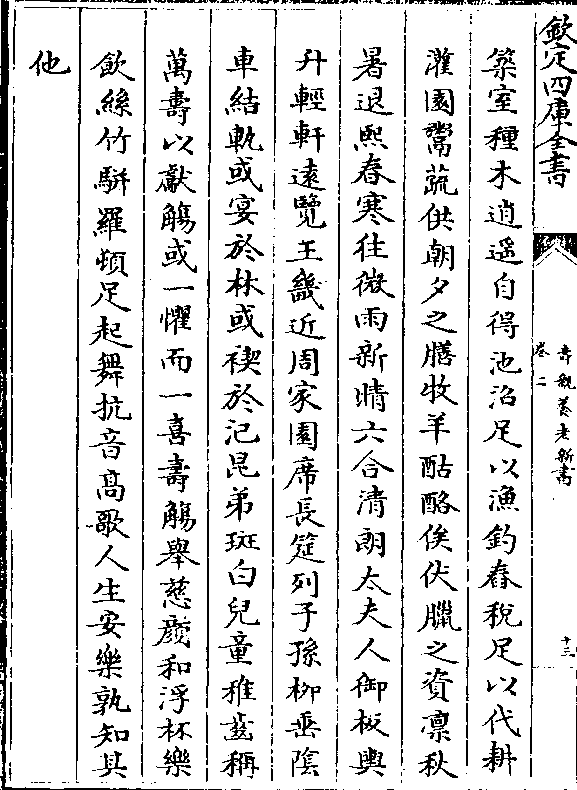 欽定四庫全書
壽親養老新書
卷二
十三
築室種木逍遥自得池沼足以漁釣舂稅足以代耕
灌園鬻蔬供朝夕之膳牧羊酤酪俟伏臘之資凛秋
暑退熙春寒往微雨新晴六合清朗太夫人御板輿
升輕軒遠覽王畿近周家園席長筵列子孫柳垂陰
車結軌或宴於林或禊於汜昆弟斑白兒童稚齒稱
萬壽以獻觴或一懼而一喜壽觴舉慈顔和浮杯樂
飲絲竹駢羅頓足起舞抗音髙歌人生安樂孰知其
他